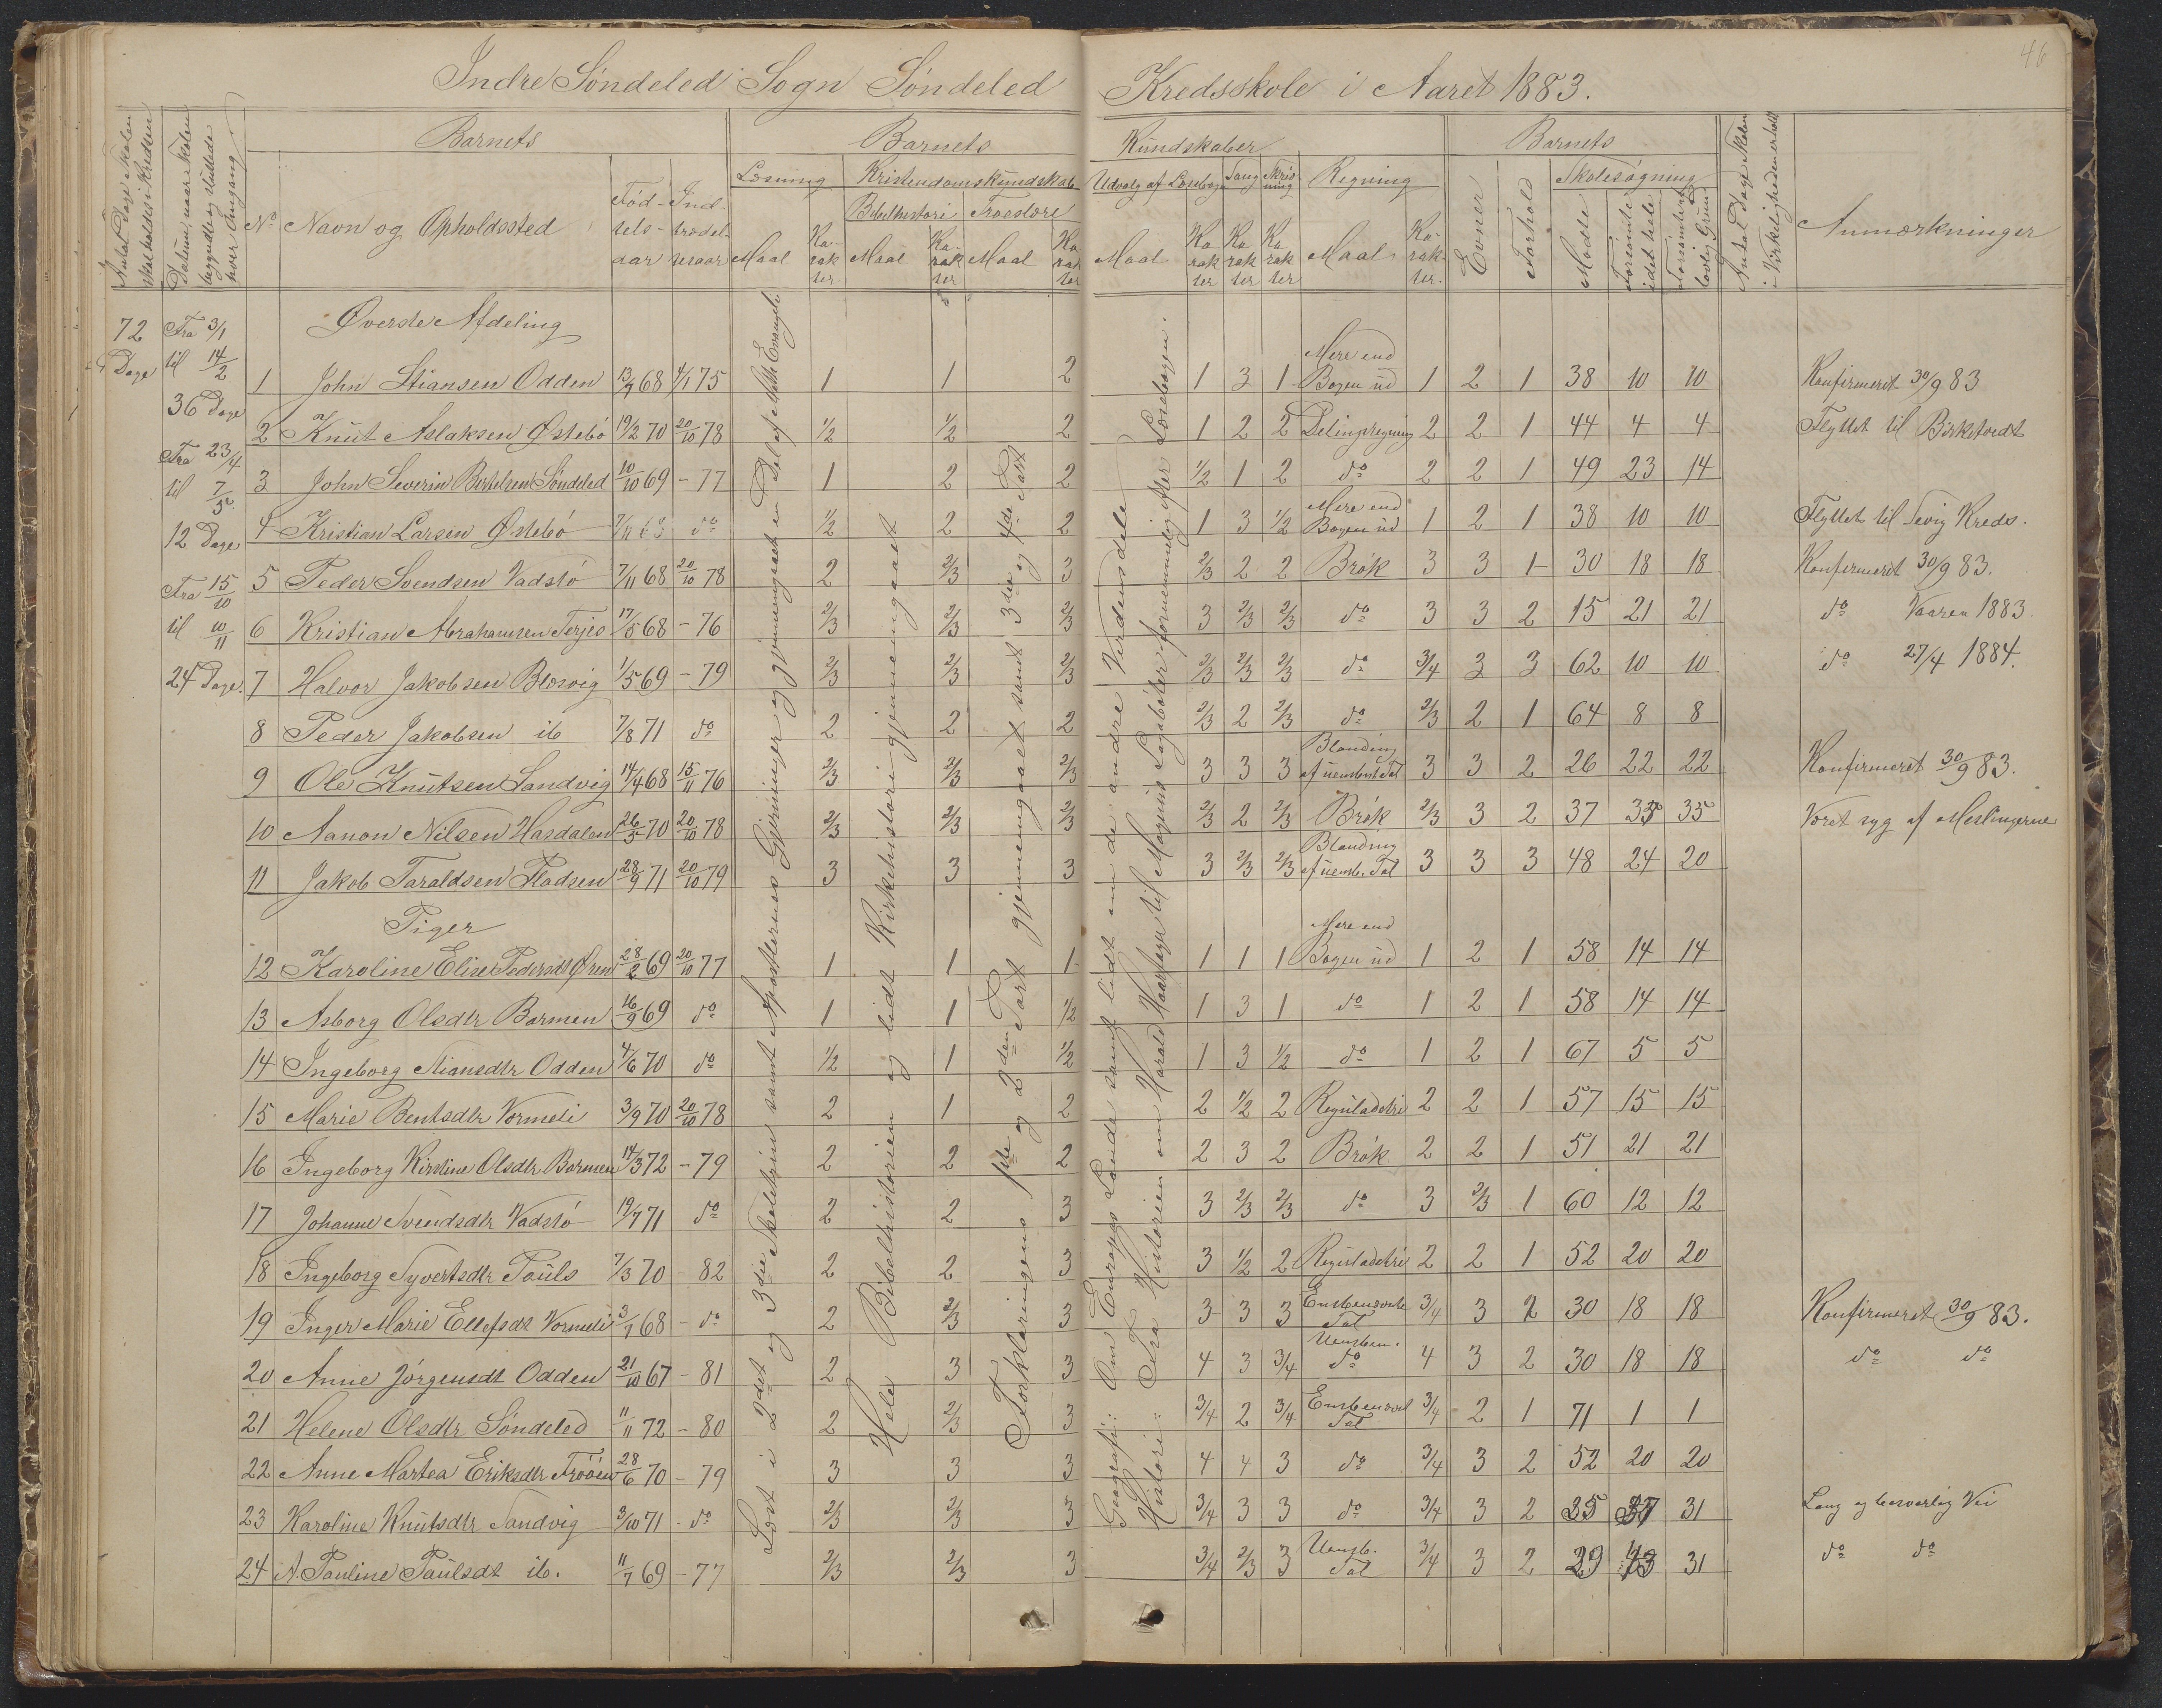 46
Indre Søndeled Sogn Søndeled Kredsskole i Aaret 1883.
Antal Dage Skolen skal holdes i Kredsen
Datum, naar Skolen begyndte og sluttede hver Omgang
Barnets
No Navn og Opholdssted
Fødselsaar
Indtrædelsesaar
Barnets Kundskaber
Læsning
Maal Karakter
Kristendomskundskab
Bibelhistorie
Maal Karakter
Troeslære
Maal Karakter
Udvalg af Læsebogen
Maal Karakter
Sang Karakter
Skrivning Karakter
Regning
Maal Karakter
Barnets
Evner
Forhold
Skolesøgning
Mødte
Forsømte i det hele
Forsømte af lovlig Grund
Antal Dage Skolen i Virkeligheden er holdt
Anmærkninger
72 Dage
Fra 3/1
til 14/2
36 Dage
Fra 23/4
til 7/5
12 Dage
Fra 15/10
til 10/11
24 Dage.
Læst i 2det og 3die Skoletrin samt Apostlernes Gjerninger og gjennemgaaet en Del af Math. Evangeli
Hele Bibelhistorien og lidt Kirkehistorie gjennemgaaet
Forklaringens 1ste og 2den Part gjennemgaaet samt 3die og 4de Part
Geografi: Om Europas Lande samt lidt om de andre Verdensdele
Historie: Fra Historien om Harald Haarfagre til Magnus Lagabøter fornemmelig efter Læsebogen.
Øverste Afdeling
1 John Stiansen Odden 13/9 68 4/1 75 1 1 2 1 3 1 Mere end Bogen ud 1 2 1 38 10 10 Konfirmeret 30/9 83
2 Knut Aslaksen Østebø 19/2 70 20/10 78 1/2 1/2 2 1 2 2 Delingsregning 2 2 1 44 4 4 Flyttet til Birketvedt
3 John Severin Bertelsen Søndeled 10/10 69 - 77 1 2 2 1/2 1 2 do 2 2 1 49 23 14
4 Kristian Larsen Østebø do 1/2 2 2 1 3 1/2 Mere end Bogen ud 1 2 1 38 10 10 Flyttet til Sevig Kreds.
5 Peder Svendsen Vadstø 7/11 68 20/10 78 2 2/3 3 2/3 2 2 Brøk 3 3 1 30 18 18 Konfirmeret 30/9 83.
6 Kristian Abrahamsen Terjes 17/5 68 - 76 2/3 2/3 2/3 3 2/3 2/3 do 3 3 2 15 21 21 do Vaaren 1883.
7 Halvor Jakobsen Blesvig 1/5 69 - 79 2/3 2/3 2/3 2/3 2/3 2/3 do 3/4 3 3 62 10 10 do 27/4 1884.
8 Peder Jakobsen ib 7/8 71 do 2 2 2 2/3 2 2/3 do 2/3 2 1 64 8 8
9 Ole Knutsen Sandvig 14/4 68 15/11 76 2/3 2/3 2/3 3 3 3 Blanding af uensb. Tal 3 3 2 26 22 22 Konfirmeret 30/9 83.
10 Aanon Nilsen Hasdalen 26/5 70 20/10 78 2/3 2/3 2/3 2/3 2 2/3 Brøk 2/3 3 2 37 35 35 Været syg af Meslingerne
11 Jakob Taraldsen Fladsen 28/9 71 20/10 79 3 3 3 3 2/3 2/3 Blanding af uensb. Tal 3 3 3 48 24 20
Piger
12 Karoline Elise Pedersdt Øren 28/2 69 20/10 77 1 1 1 1 1 1 Mere end Bogen ud 1 2 1 58 14 14
13 Asborg Olsdtr Barmen 16/9 69 do 1 1 1/2 1 3 1 do 1 2 1 58 14 14
14 Ingeborg Stiansdtr Odden 4/6 70 do 1/2 1 1/2 1 3 1/2 do 1 2 1 67 5 5
15 Marie Bentsdtr Vormeli 3/9 70 20/10 78 2 1 2 2 1/2 2 Reguladetri 2 2 1 57 15 15
16 Ingeborg Kirstine Olsdtr Barmen 14/3 72 - 79 2 2 2 2 3 2 Brøk 2 2 1 51 21 21
17 Johanne Svendsdtr Vadstø 19/7 71 do 2 2 3 3 2/3 2/3 do 3 2/3 1 60 12 12
18 Ingeborg Syvertsdtr Pouls 7/3 70 - 82 2 2 3 3 1/2 2 Reguladetri 2 2 1 52 20 20
19 Inger Marie Ellefsdt Vormeli 3/9 68 - do 2 2/3 3 3 3 3 Ensbenævnte Tal 3/4 3 2 30 18 18 Konfirmeret 30/9 83.
20 Anne Jørgensdt Odden 21/10 67 - 81 2 3 3 4 3 3/4 Uensben. do 4 3 2 30 18 18 do do
21 Helene Olsdtr Søndeled 11/11 72 - 80 2 2/3 3 3/4 2 3/4 Ensbenævnt Tal 3/4 2 1 71 1 1
22 Anne Martea Eriksdtr Frøøsen 28/6 70 - 79 3 3 3 4 4 3 do 3/4 3 2 52 20 20
23 Karoline Knutsdtr Sandvig 3/10 71 - do 2/3 2/3 3 3/4 3 3 do 3/4 3 2 35 37 31 Lang og besværlig Vei
24 A. Pauline Paulsdt ib. 11/7 69 - 77 2/3 2/3 3 3/4 2/3 3 Uensb. Tal 3/4 3 2 29 43 31 do do